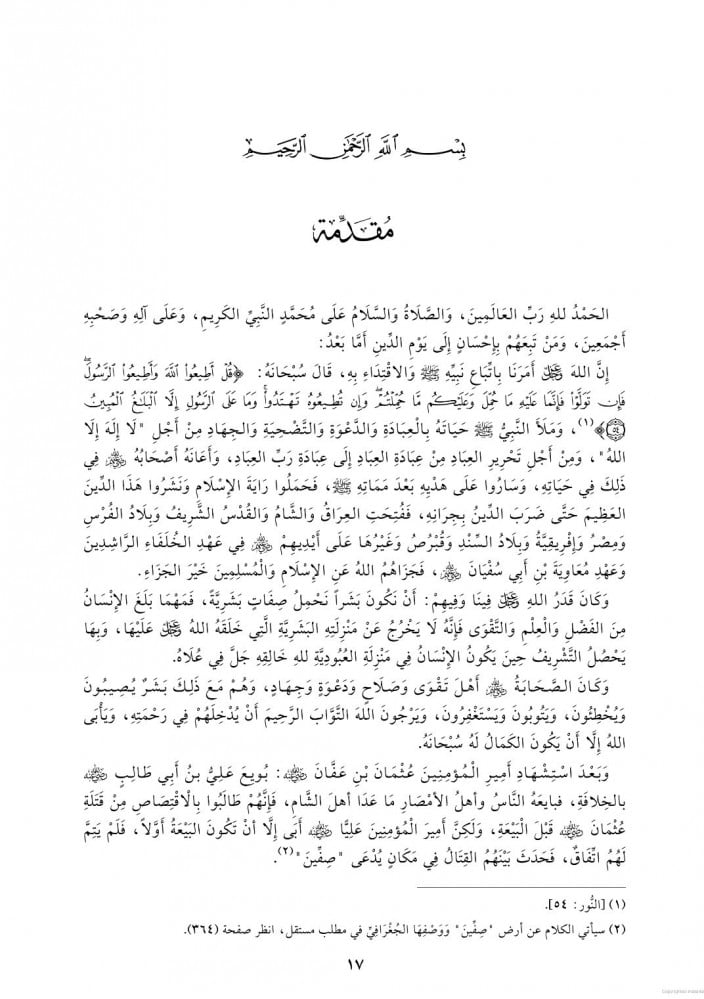 بِسْمِ اللَّهِ الرَّحْمَٰنِ الرَّحِيمِ
مُقَدِّمَة
الحَمْدُ للهِ رَبِّ العَالَمِينَ، وَالصَّلَاةُ وَالسَّلَامُ عَلَى مُحَمَّدٍ النَّبِيِّ الكَرِيمِ، وَعَلَى آلِهِ وَصَحْبِهِ
أَجْمَعِينَ، وَمَنْ تَبِعَهُمْ بِإِحْسَانٍ إِلَى يَوْمِ الدِّينِ أَمَّا بَعْدُ:
إِنَّ اللهَ ﷻ أَمَرَنَا بِاتِّبَاعِ نَبِيِّهِ ﷺ وَالاقْتِدَاءِ بِهِ، قَالَ سُبْحَانَهُ: ﴿قُلْ أَطِيعُوا۟ ٱللَّهَ وَأَطِيعُوا۟ ٱلرَّسُولَ ۖ
فَإِن تَوَلَّوْا۟ فَإِنَّمَا عَلَيْهِ مَا حُمِّلَ وَعَلَيْكُم مَّا حُمِّلْتُمْ ۖ وَإِن تُطِيعُوهُ تَهْتَدُوا۟ ۚ وَمَا عَلَى ٱلرَّسُولِ إِلَّا ٱلْبَلَٰغُ ٱلْمُبِينُ
۝٥٤﴾(١)، وَمَلَأَ النَّبِيُّ ﷺ حَيَاتَهُ بِالْعِبَادَةِ وَالدَّعْوَةِ وَالتَّضْحِيَةِ وَالجِهَادِ مِنْ أَجْلِ "لَا إِلَهَ إِلَّا
اللهُ"، وَمِنْ أَجْلِ تَحْرِيرِ العِبَادِ مِنْ عِبَادَةِ العِبَادِ إِلَى عِبَادَةِ رَبِّ العِبَادِ، وَأَعَانَهُ أَصْحَابُهُ ﵃ فِي
ذَلِكَ فِي حَيَاتِهِ، وَسَارُوا عَلَى هَدْيِهِ بَعْدَ مَمَاتِهِ ﷺ، فَحَمَلُوا رَايَةَ الإِسْلَامِ وَنَشَرُوا هَذَا الدِّينَ
العَظِيمَ حَتَّى ضَرَبَ الدِّينُ بِجِرَانِهِ، فَفُتِحَتِ العِرَاقُ وَالشَّامُ وَالقُدْسُ الشَّرِيفُ وَبِلَادُ الفُرْسِ
وَمِصْرُ وَإِفْرِيقِيَّةُ وَبِلَادُ السِّنْدِ وَقُبْرُصُ وَغَيْرُهَا عَلَى أَيْدِيهِمْ ﵃ فِي عَهْدِ الخُلَفَاءِ الرَّاشِدِينَ
وَعَهْدِ مُعَاوِيَةَ بْنِ أَبِي سُفْيَانَ ﵁، فَجَزَاهُمُ اللهُ عَنِ الإِسْلَامِ وَالْمُسْلِمِينَ خَيْرَ الجَزَاءِ.
وَكَانَ قَدَرُ اللهِ ﷻ فِينَا وَفِيهِمْ: أَنْ نَكُونَ بَشَراً نَحْمِلُ صِفَاتٍ بَشَرِيَّةً، فَمَهْمَا بَلَغَ الإِنْسَانُ
مِنَ الفَضْلِ وَالْعِلْمِ وَالتَّقْوَى فَإِنَّهُ لَا يَخْرُجُ عَنْ مَنْزِلَتِهِ البَشَرِيَّةِ الَّتِي خَلَقَهُ اللهُ ﷻ عَلَيْهَا، وَبِهَا
يَحْصُلُ التَّشْرِيفُ حِينَ يَكُونُ الإِنْسَانُ فِي مَنْزِلَةِ العُبُودِيَّةِ للهِ خَالِقِهِ جَلَّ فِي عُلَاهُ.
وَكَانَ الصَّحَابَةُ ﵃ أَهْلَ تَقْوَى وَصَلَاحٍ وَدَعْوَةٍ وَجِهَادٍ، وَهُمْ مَعَ ذَلِكَ بَشَرٌ يُصِيبُونَ
وَيُخْطِئُونَ، وَيَتُوبُونَ وَيَسْتَغْفِرُونَ، وَيَرْجُونَ اللهَ التَّوَّابَ الرَّحِيمَ أَنْ يُدْخِلَهُمْ فِي رَحْمَتِهِ، وَيَأْبَى
اللهُ إِلَّا أَنْ يَكُونَ الكَمَالُ لَهُ سُبْحَانَهُ.
وَبَعْدَ اسْتِشْهَادِ أَمِيرِ الْمُؤْمِنِينَ عُثْمَانَ بْنِ عَفَّانَ ﵁: بُويِعَ عَلِيُّ بنُ أَبِي طَالِبٍ ﵁
بالخِلافَةِ، فبايعَهُ النَّاسُ وأهلُ الأمْصَارِ مَا عَدَا أهلَ الشَّامِ، فَإِنَّهُمْ طَالَبُوا بِالْاقْتِصَاصِ مِنْ قَتَلَةِ
عُثْمَانَ ﵁ قَبْلَ الْبَيْعَةِ، وَلَكِنَّ أَمِيرَ الْمُؤْمِنِينَ عَلِيًّا ﵁ أَبَى إِلَّا أَنْ تَكُونَ البَيْعَةُ أَوَّلاً، فَلَمْ يَتِمَّ
لَهُمُ اتِّفَاقٌ، فَحَدَثَ بَيْنَهُمُ القِتَالُ فِي مَكَانٍ يُدْعَى "صِفِّينَ"(٢).
(١) [النُّور: ٥٤].
(٢) سيأتي الكلام عن أرض "صِفِّينَ" وَوَصْفِهَا الجُغْرَافِيِّ في مطلب مستقل، انظر صفحة (٣٦٤).
١٧